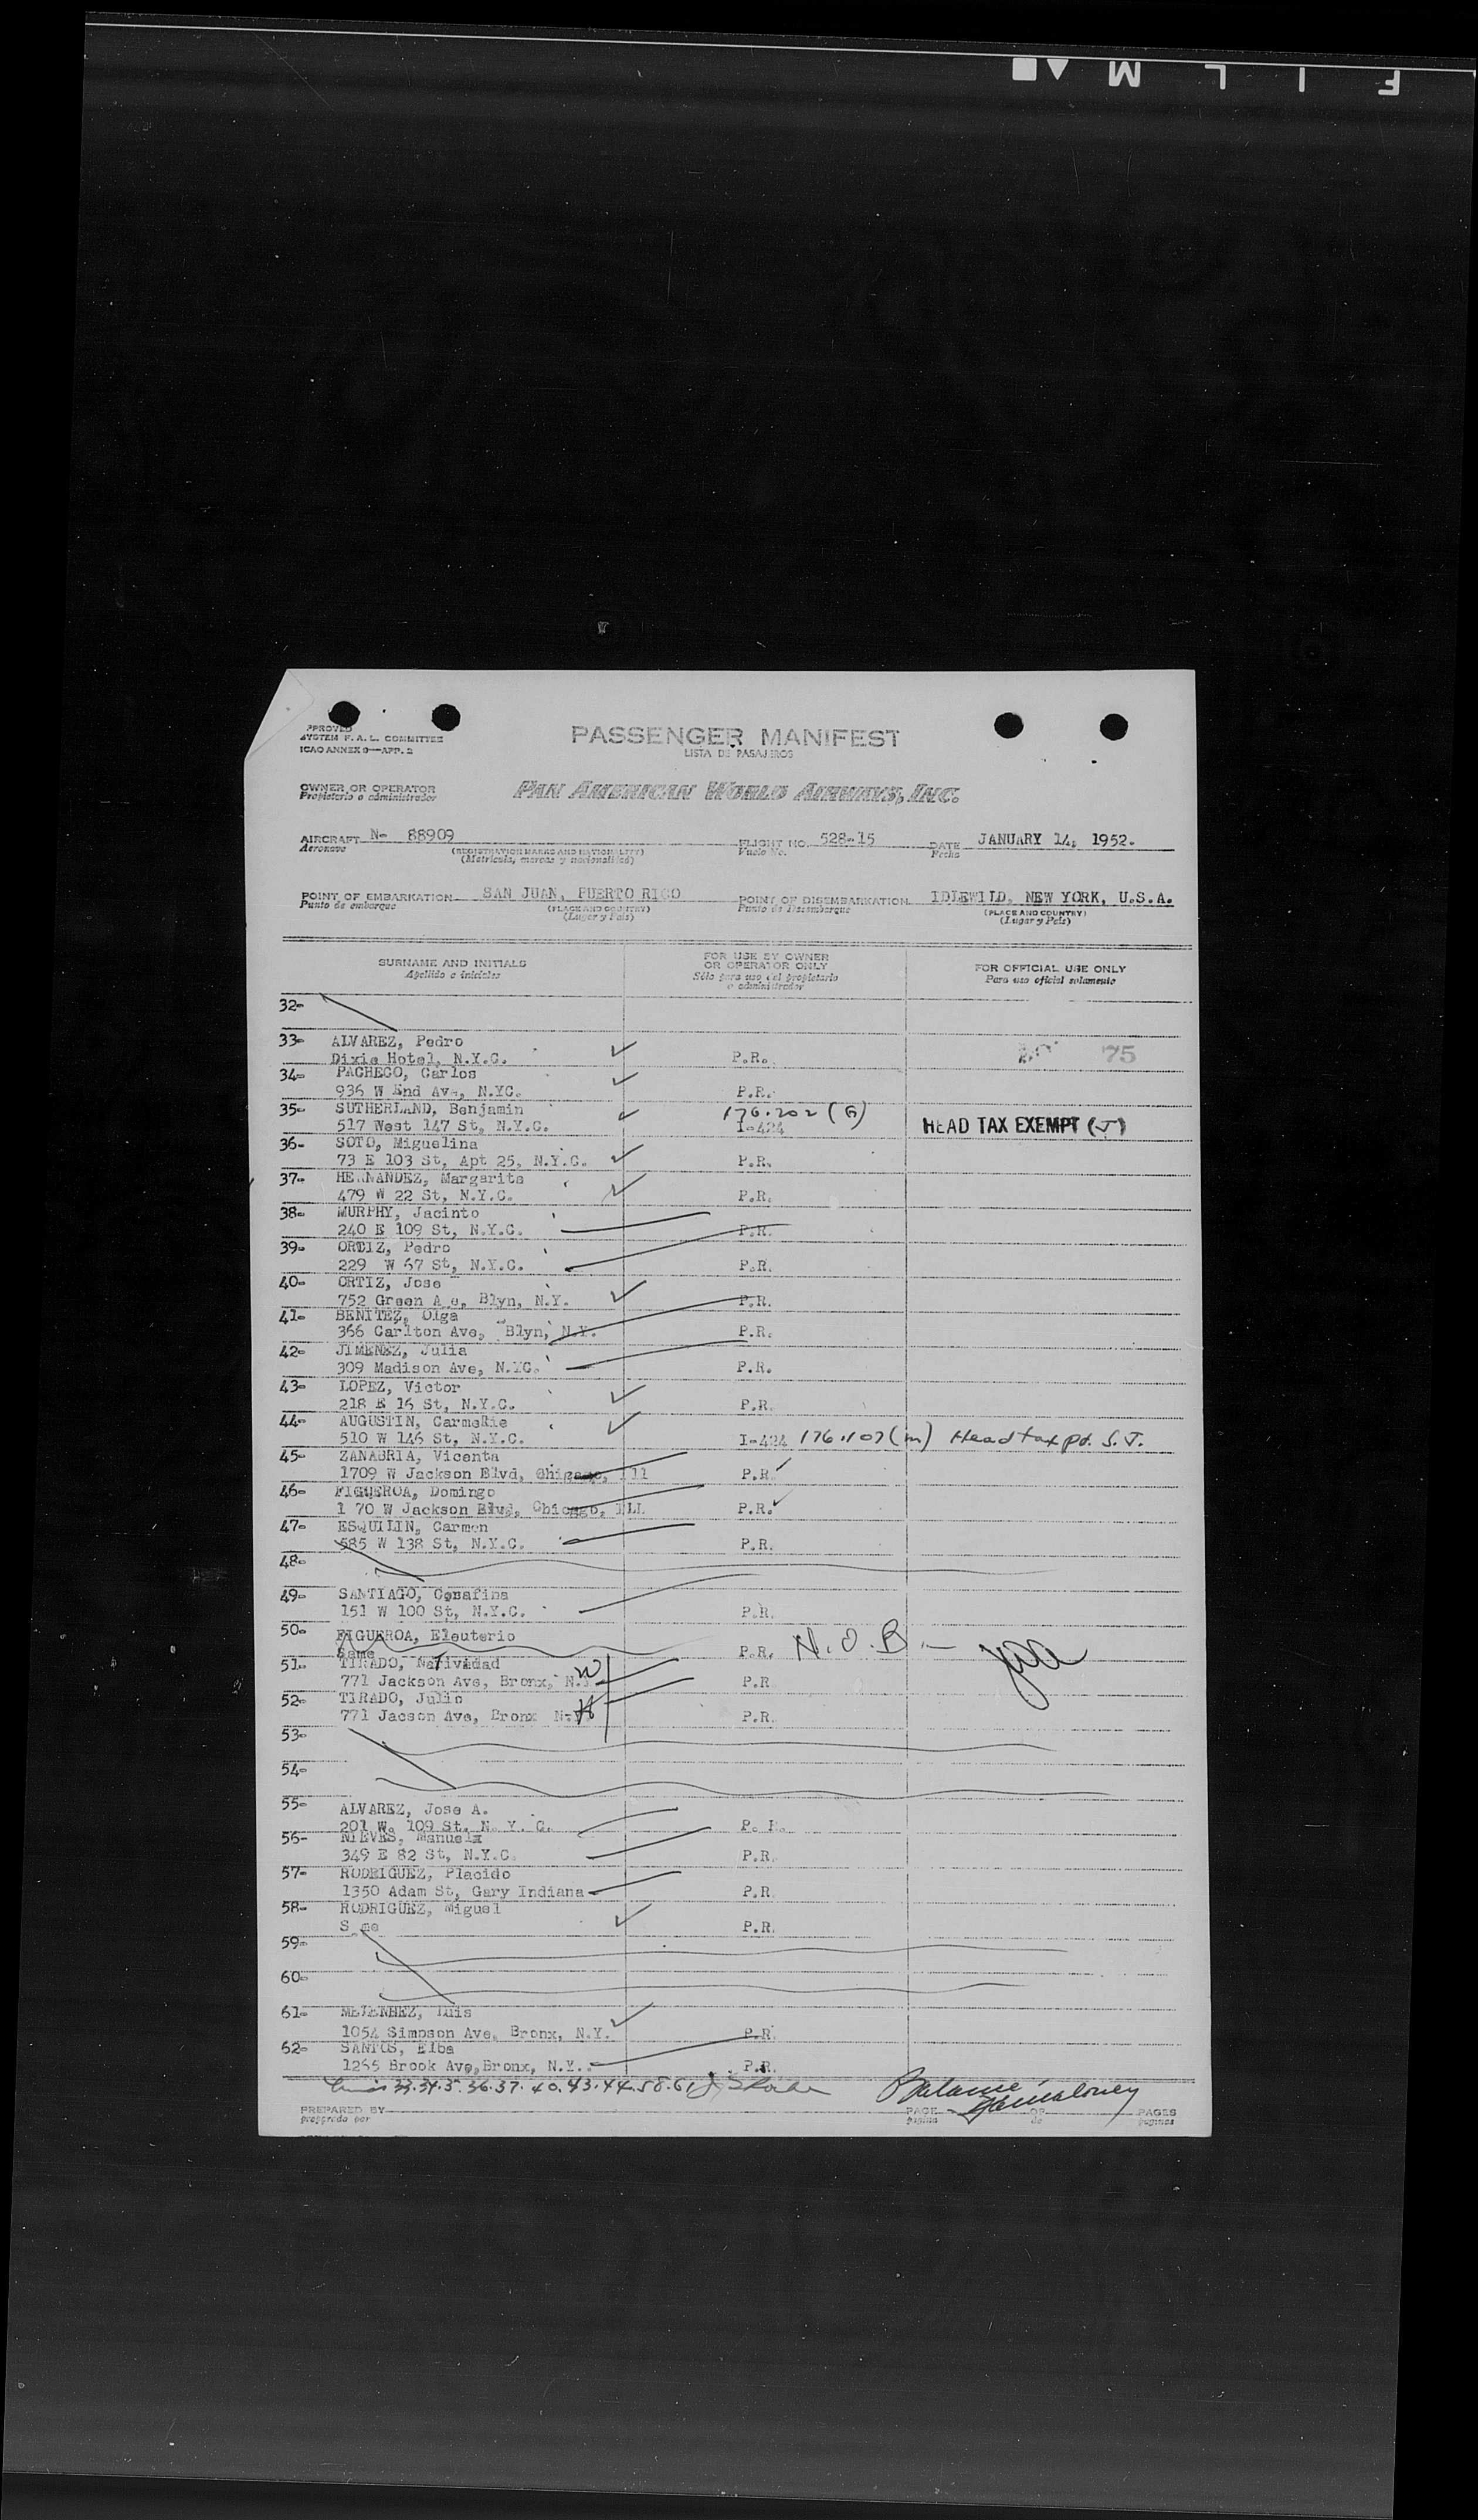 FILM
APPROVED
SYSTEM F. A. L. COMMITTEE
ICAO ANNEX 9—APP. 2
PASSENGER MANIFEST
LISTA DE PASAJEROS
OWNER OR OPERATOR
Propietario o administrador
PAN AMERICAN WORLD AIRWAYS, INC.
AIRCRAFT N- 88909 FLIGHT NO. 528-15 DATE JANUARY 14, 1952.
Aeronave (REGISTRATION MARKS AND NATIONALITY) Vuelo No. Fecha
(Matricula, marcas y nacionalidad)
POINT OF EMBARKATION SAN JUAN, PUERTO RICO POINT OF DISEMBARKATION IDLEWILD, NEW YORK, U.S.A.
Punto de embarque (PLACE AND COUNTRY) Punto de Desembarque (PLACE AND COUNTRY)
(Lugar y País) (Lugar y País)
SURNAME AND INITIALS FOR USE BY OWNER OR OPERATOR ONLY FOR OFFICIAL USE ONLY
Apellido e iniciales Sólo para uso del propietario o administrador Para uso oficial solamente
32-
33- ALVAREZ, Pedro
Dixie Hotel, N.Y.C. P.R. 75
34- PACHECO, Carlos
936 W End Av-, N.YC. P.R.
35- SUTHERLAND, Benjamin 176.202 (G)
517 West 147 St, N.Y.C. I-424 HEAD TAX EXEMPT (J)
36- SOTO, Miguelina
73 E 103 St, Apt 25, N.Y.C. P.R.
37- HERNANDEZ, Margarita
479 W 22 St, N.Y.C. P.R.
38- MURPHY, Jacinto
240 E 109 St, N.Y.C. P.R.
39- ORTIZ, Pedro
229 W 67 St, N.Y.C. P.R.
40- ORTIZ, Jose
752 Green A e, Blyn, N.Y. P.R.
41- BENITEZ, Olga
366 Carlton Ave, Blyn, N.Y. P.R.
42- JIMENEZ, Julia
309 Madison Ave, N.YC. P.R.
43- LOPEZ, Victor
218 E 16 St, N.Y.C. P.R.
44- AUGUSTIN, Carmelie
510 W 146 St, N.Y.C. I-424 176.107(m) Head tax pd. S.J.
45- ZANABRIA, Vicenta
1709 W Jackson Blvd, Chicago, Ill P.R.
46- FIGUEROA, Domingo
1 70 W Jackson Blvd, Chicago, ILL P.R.
47- ESQUILIN, Carmen
585 W 138 St, N.Y.C. P.R.
48-
49- SANTIAGO, Cosafina
151 W 100 St, N.Y.C. P.R.
50- FIGUEROA, Eleuterio
Same P.R. N.O.B.-
51- TIRADO, Natividad
771 Jackson Ave, Bronx, N.Y. W P.R
52- TIRADO, Julio
771 Jacson Ave, Bronx N.Y. H P.R.
53-
54-
55- ALVAREZ, Jose A.
201 W. 109 St. N. Y. C. P. R.
56- NIEVES, Manuela
349 E 82 St, N.Y.C. P.R.
57- RODRIGUEZ, Placido
1350 Adam St, Gary Indiana P.R.
58- RODRIGUEZ, Miguel
S me P.R.
59-
60-
61- Luis
1054 Simpson Ave, Bronx, N.Y. P.R.
62- SANTOS, Elba
1265 Brook Ave, Bronx, N.Y. P.R.
33.34.5.36.37.40.43.44.58.61 Balance
PREPARED BY PAGE OF PAGES
preparado por página de páginas